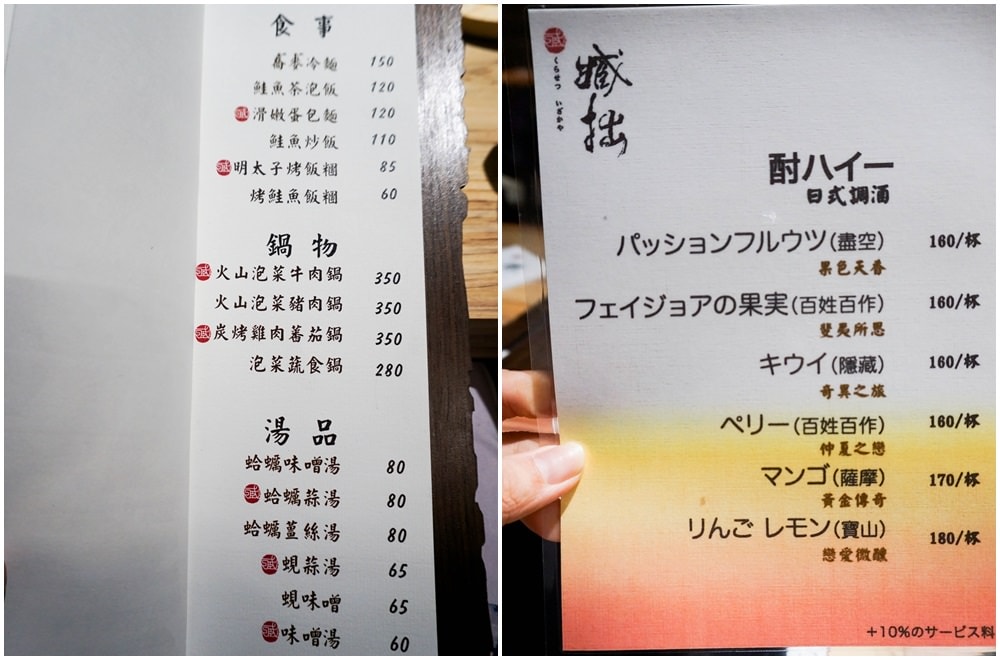 食事
蕎麥冷麵 150
鮭魚茶泡飯 120
藏 滑嫩蛋包麵 120
鮭魚炒飯 110
藏 明太子烤飯糰 85
烤鮭魚飯糰 60
鍋物
藏 火山泡菜牛肉鍋 350
火山泡菜豬肉鍋 350
藏 炭烤雞肉蕃茄鍋 350
泡菜蔬食鍋 280
湯品
蛤蠣味噌湯 80
藏 蛤蠣蒜湯 80
蛤蠣薑絲湯 80
藏 蜆蒜湯 65
蜆味噌 65
藏 味噌湯 60
藏
くらせつ いざかや
藏拙
酎ハイー
日式調酒
パッションフルウツ(盡空) 160/杯
果色天香
フェイジョアの果実(百姓百作) 160/杯
斐夷所思
キウイ(隱藏) 160/杯
奇異之旅
ペリー(百姓百作) 160/杯
仲夏之戀
マンゴ(薩摩) 170/杯
黃金傳奇
りんご レモン(寶山) 180/杯
戀愛微醺
+10%のサービス料